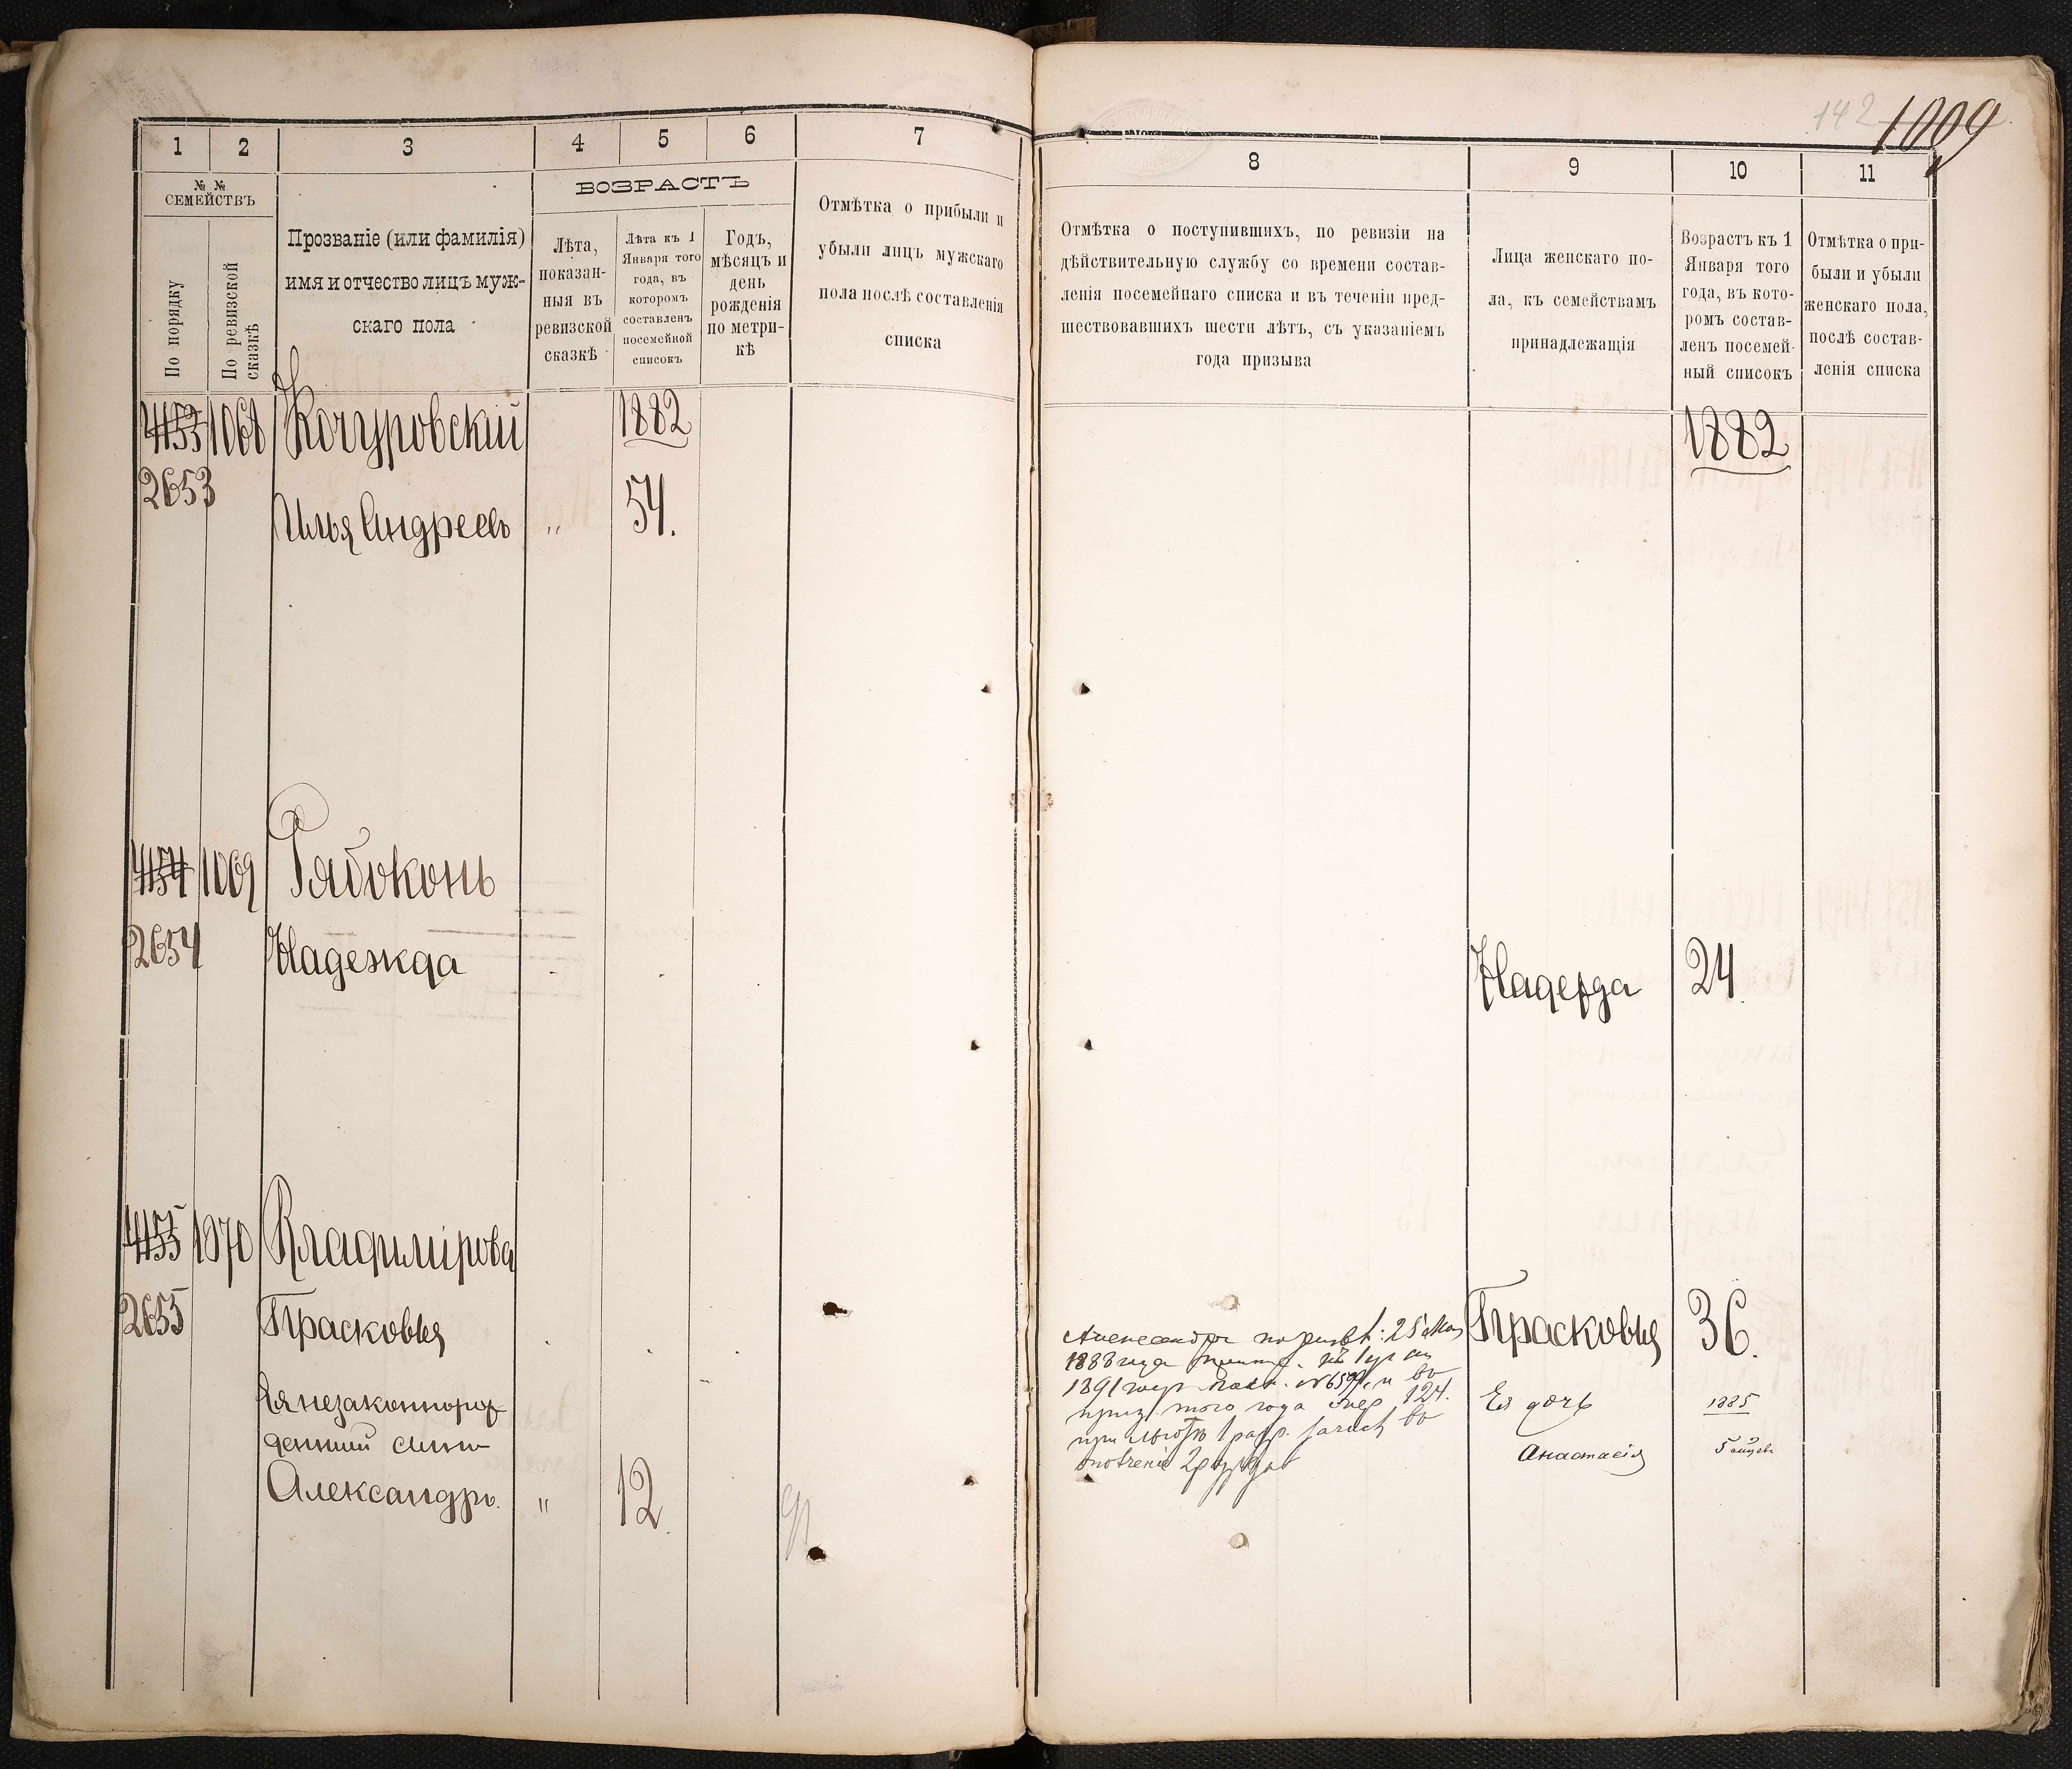 142 1009
1 2 3 4 5 6 7
№ №
СЕМЕЙСТВЪ
По порядку
По ревизской
сказкѣ
Прозваніе (или фамилія)
имя и отчество лицъ муж-
скаго пола
ВОЗРАСТЪ
Лѣта,
показан-
ныя въ
ревизской
сказкѣ
Лѣта къ 1
Января того
года, въ
которомъ
составленъ
посемейной
списокъ
Годъ,
мѣсяцъ и
день
рожденія
по метри-
кѣ
Отмѣтка о прибыли и
убыли лицъ мужскаго
пола послѣ составленія
списка
4153 1068 Кочуровскій 1882
2653
Илья Андреевъ „ 54.
4154 1069 Рябоконь
2654 Надежда
4155 1070 Владимірова
2655 Прасковья
Ея незаконнорож-
денный сынъ
Александръ. „ 12.
8 9 10 11
Отмѣтка о поступившихъ, по ревизіи на
дѣйствительную службу со времени состав-
ленія посемейнаго списка и въ теченіи пред-
шествовавшихъ шести лѣтъ, съ указаніемъ
года призыва
Лица женскаго по-
ла, къ семействамъ
принадлежащія
Возрастъ къ 1
Января того
года, въ кото-
ромъ состав-
ленъ посемей-
ный списокъ
Отмѣтка о при-
были и убыли
женскаго пола,
послѣ состав-
ленія списка
1882
Надежда 24.
Прасковья 36.
Александръ 25 Мая
1888 года
1891
того года 124.
Ея дочь 1885
Анастасія